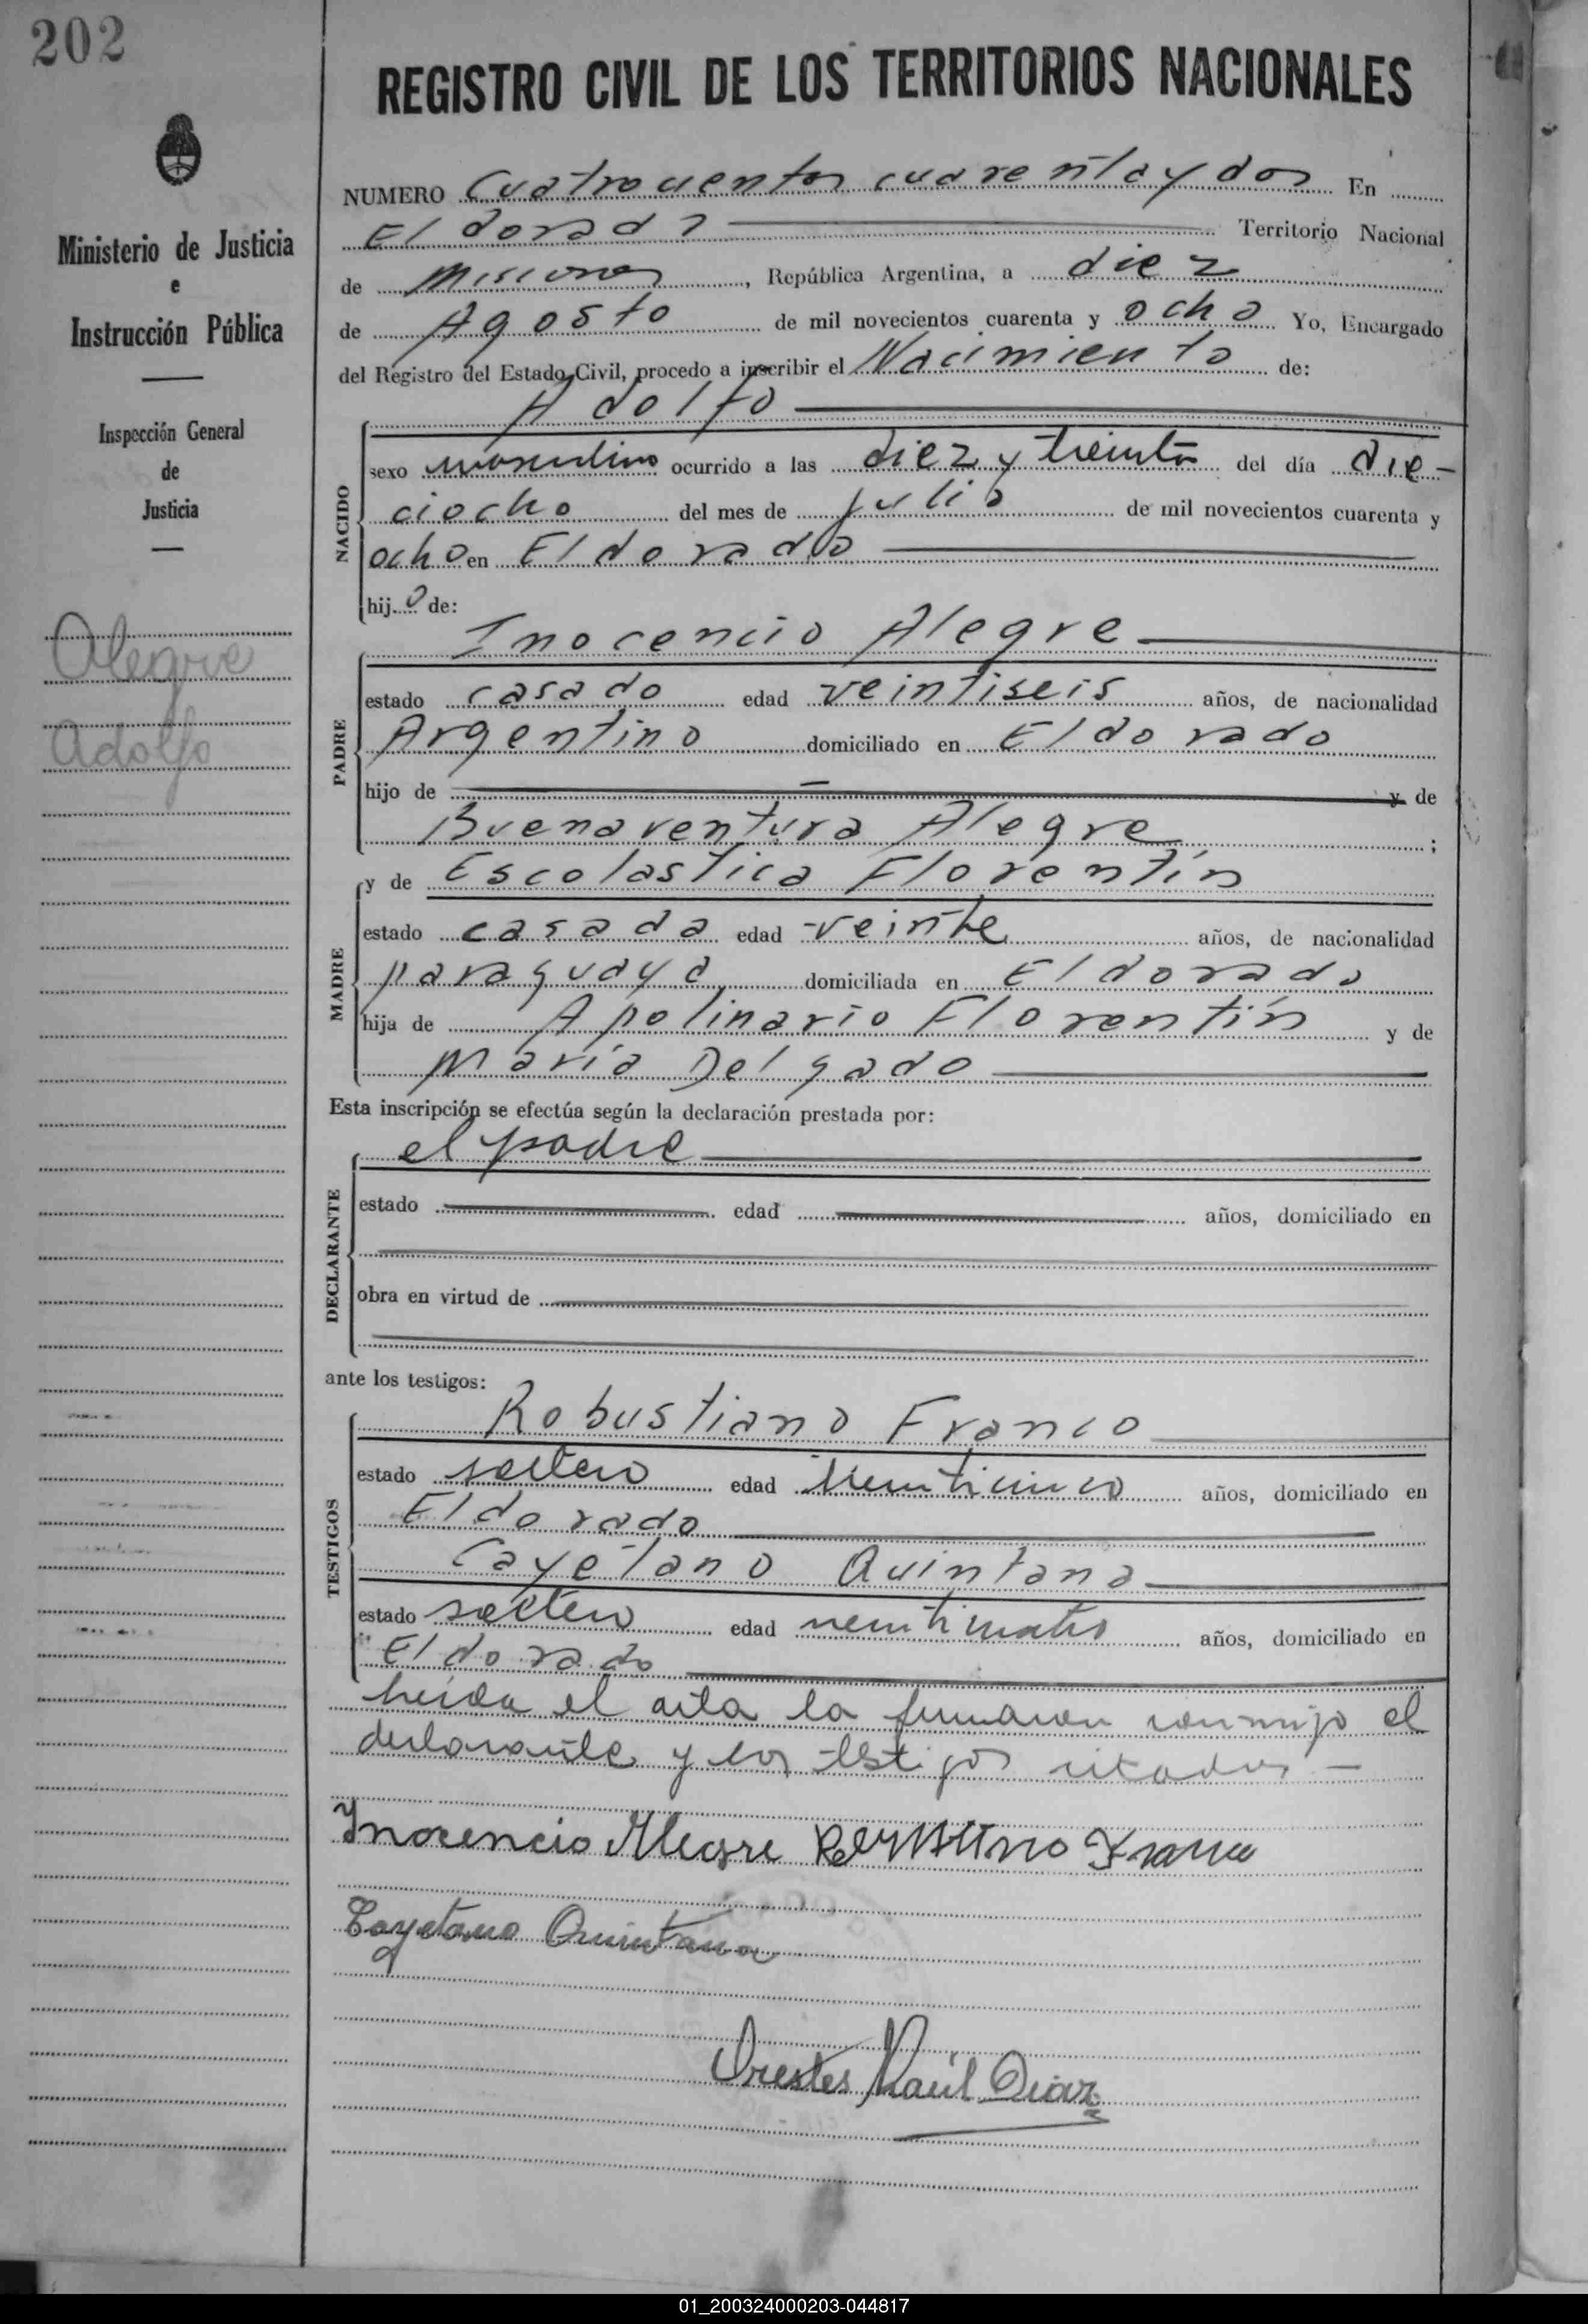 202
Ministerio de Justicia
e
Instrucción Pública
Inspección General
de
Justicia
Alegre
Adolfo
REGISTRO CIVIL DE LOS TERRITORIOS NACIONALES
NUMERO Cuatrocientos cuarenta y dos En
Eldorado Territorio Nacional
de Misiones, República Argentina, a diez
de Agosto de mil novecientos cuarenta y ocho Yo, Encargado
del Registro del Estado Civil, procedo a inscribir el Nacimiento de:
Adolfo
NACIDO
sexo masculino ocurrido a las diez y treinta del día die-
ciocho del mes de julio de mil novecientos cuarenta y
ocho en Eldorado
hijo de:
Inocencio Alegre
PADRE
estado casado edad veintiseis años, de nacionalidad
Argentino domiciliado en Eldorado
hijo de y de
Buenaventura Alegre ;
y de Escolastica Florentín
MADRE
estado casada edad veinte años, de nacionalidad
paraguaya domiciliada en Eldorado
hija de Apolinario Florentín y de
María Delgado
Esta inscripción se efectúa según la declaración prestada por:
el padre
DECLARANTE
estado edad años, domiciliado en
obra en virtud de
ante los testigos:
Robustiano Franco
TESTIGOS
estado soltero edad veinticinco años, domiciliado en
Eldorado
Cayetano Quintana
estado soltero edad veinticuatro años, domiciliado en
Eldorado
leida el acta la firmaron conmigo el
declarante y los testigos citados —
Inocencio Alegre Robustiano Franco
Cayetano Quintana
Orestes Raúl Diaz
01_200324000203-044817